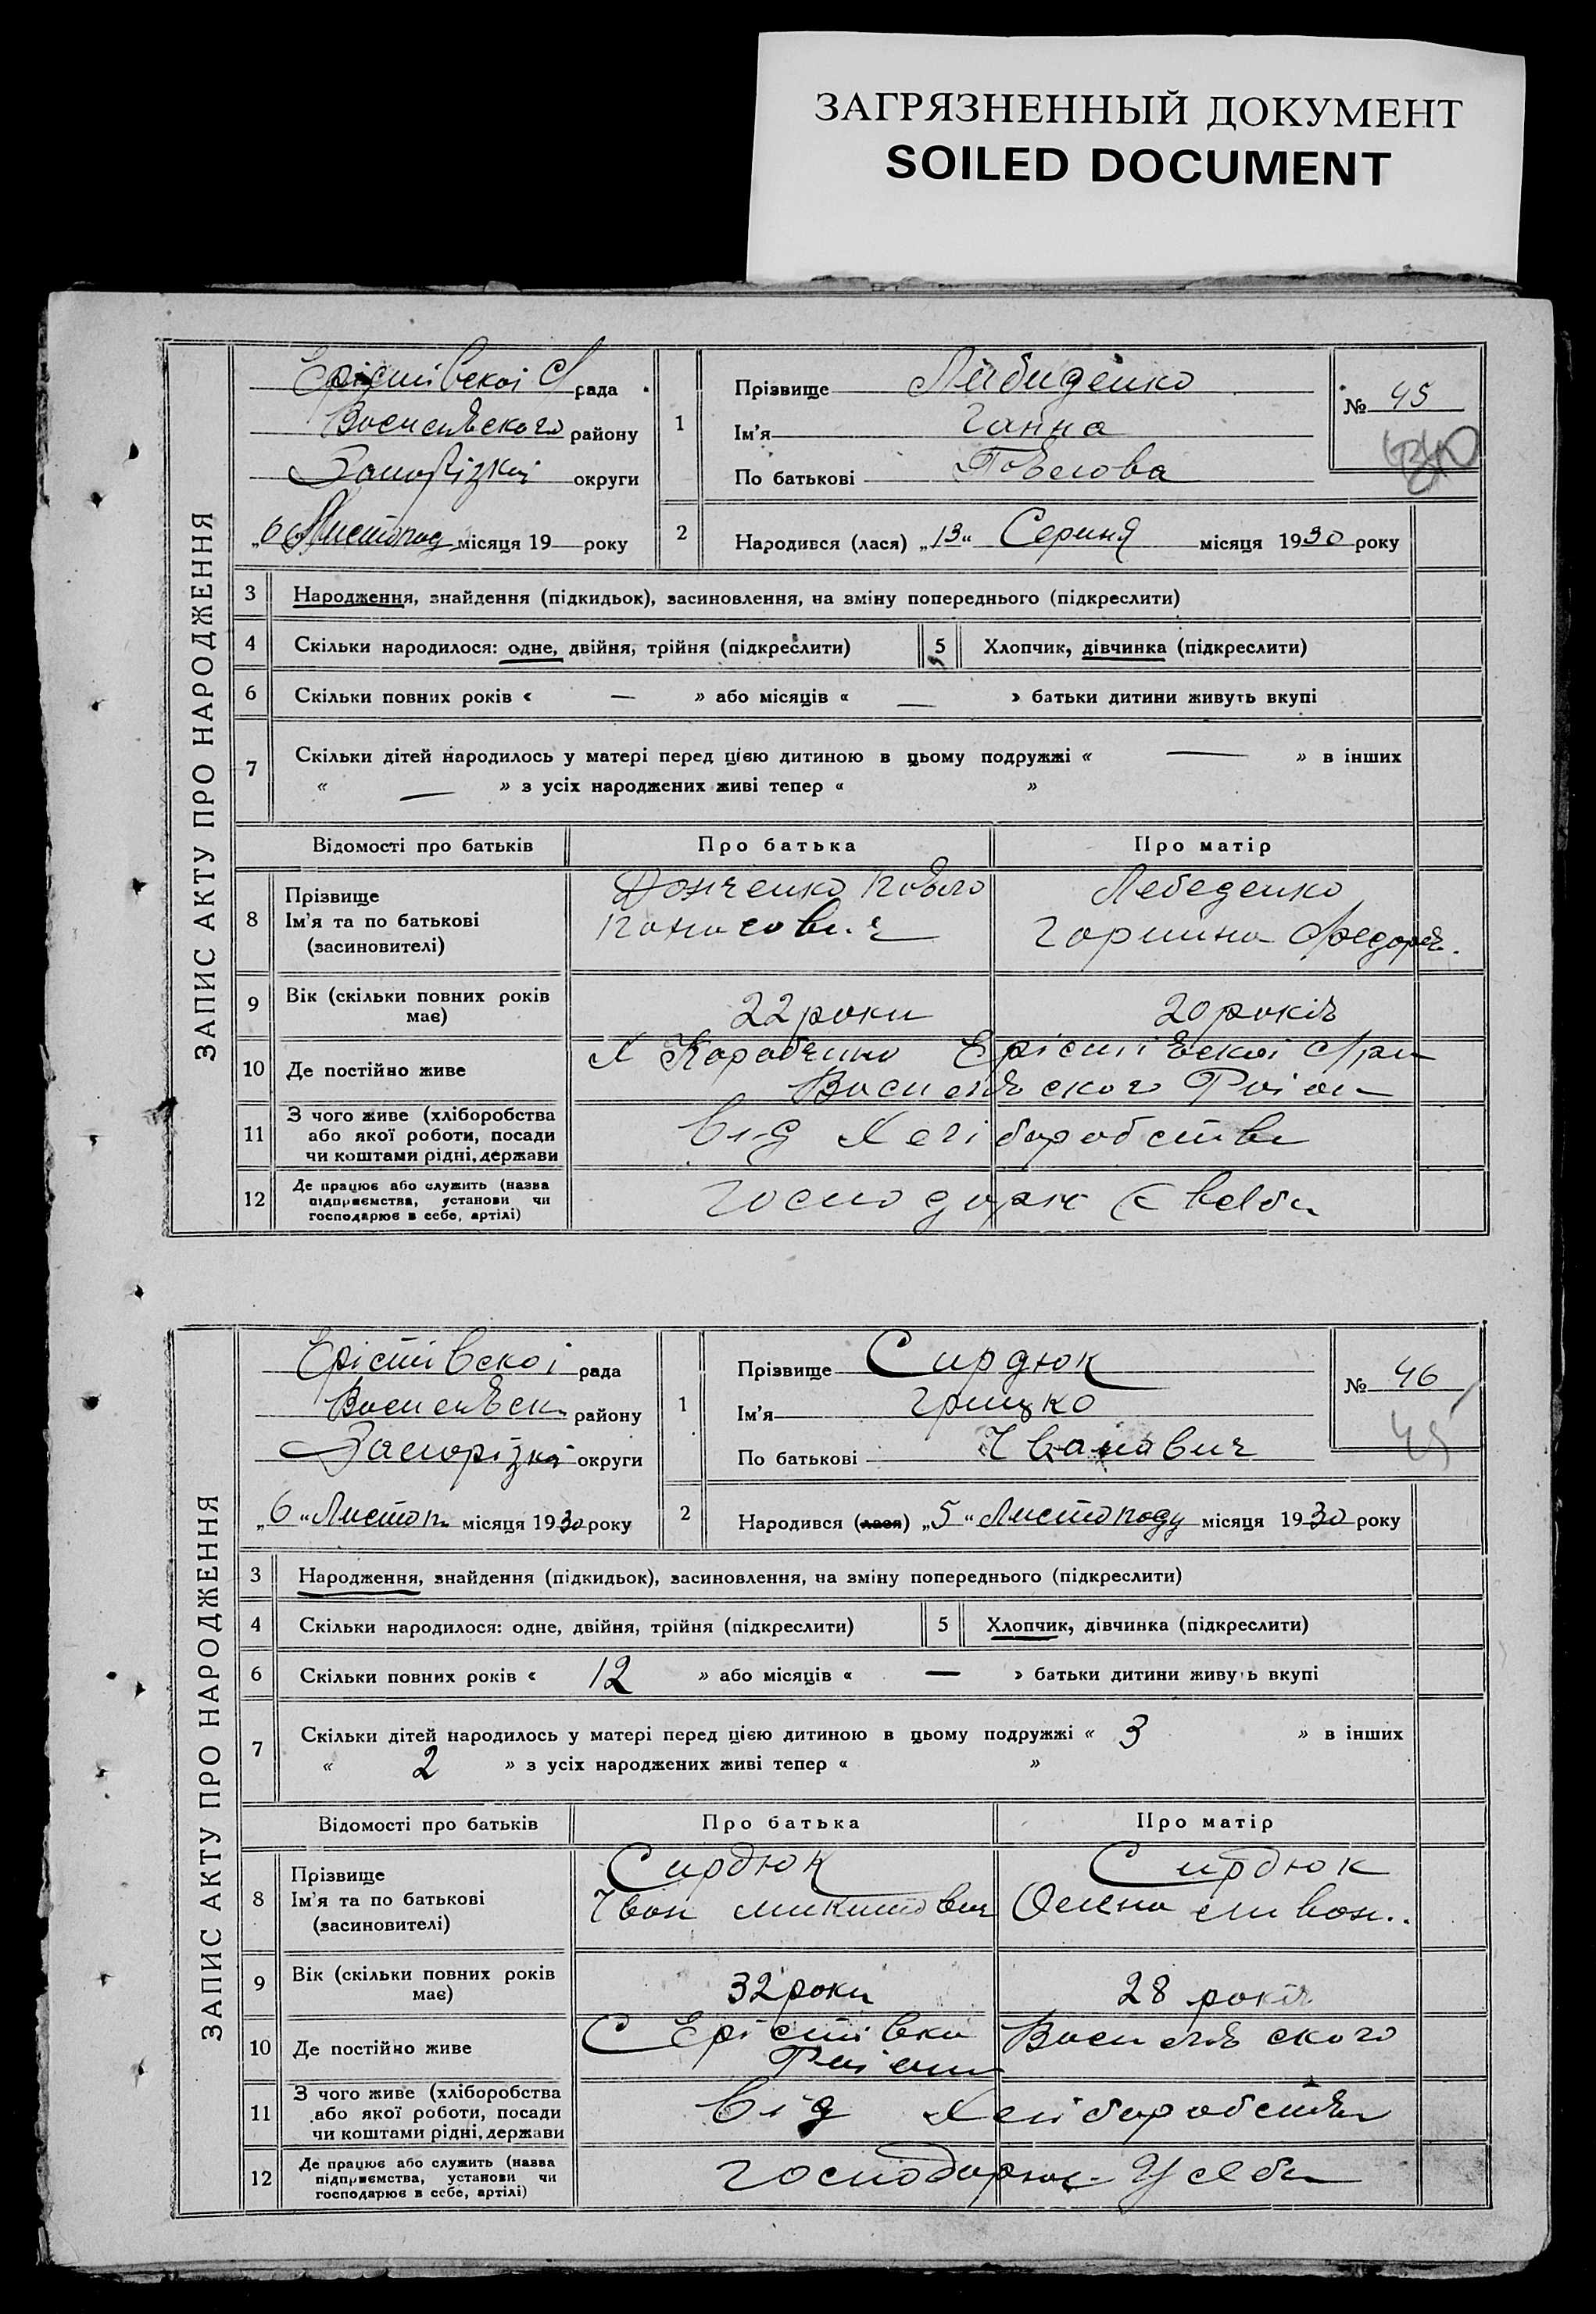 ЗАГРЯЗНЕННЫЙ ДОКУМЕНТ
SOILED DOCUMENT
ЗАПИС АКТУ ПРО НАРОДЖЕННЯ
Ерістівскої С/рада
Василівского району
Запорізкої округи
„6 Листопад місяця 19 року
1
Прізвище Лебиденко
Ім'я Ганна
По батькові Повлова
№ 45
2
Народився (лася) „13“ Серпня місяця 1930 року
3 Народження, знайдення (підкидьок), засиновлення, на зміну попереднього (підкреслити)
4 Скільки народилося: одне, двійня, трійня (підкреслити) 5 Хлопчик, дівчинка (підкреслити)
6 Скільки повних років « — » або місяців « — » батьки дитини живуть вкупі
7 Скільки дітей народилось у матері перед цією дитиною в цьому подружжі « — » в інших
« — » з усіх народжених живі тепер « »
Відомості про батьків Про батька Про матір
8 Прізвище
Ім'я та по батькові
(засиновителі)
Донченко Повло
Понасович
Лебеденко
Горпина Федоров.
9 Вік (скільки повних років
має)
22 роки 20 років
10 Де постійно живе
Х Коробчино Ерістівскої с/ри
Василівского Раіон
11 З чого живе (хліборобства
або якої роботи, посади
чи коштами рідні, держави
Від Хліборобства
12 Де працює або служить (назва
підприємства, установи чи
господарює в себе, артілі)
господарж
ЗАПИС АКТУ ПРО НАРОДЖЕННЯ
Ерістівскої рада
Василівск. району
Запорізкої округи
„6“ Листоп. місяця 1930 року
1
Прізвище Сирдюк
Ім'я Грицко
По батькові Іванович
№ 46
45
2
Народився (лася) „5“ Листопаду місяця 1930 року
3 Народження, знайдення (підкидьок), засиновлення, на зміну попереднього (підкреслити)
4 Скільки народилося: одне, двійня, трійня (підкреслити) 5 Хлопчик, дівчинка (підкреслити)
6 Скільки повних років « 12 » або місяців « — » батьки дитини живуть вкупі
7 Скільки дітей народилось у матері перед цією дитиною в цьому подружжі « 3 » в інших
« 2 » з усіх народжених живі тепер « »
Відомості про батьків Про батька Про матір
8 Прізвище
Ім'я та по батькові
(засиновителі)
Сирдюк
Івон Микитович
Сирдюк
Олена
9 Вік (скільки повних років
має)
32 роки 28 років
10 Де постійно живе
С Ерістівка Василівского
Раіони
11 З чого живе (хліборобства
або якої роботи, посади
чи коштами рідні, держави
Від Хліборобства
12 Де працює або служить (назва
підприємства, установи чи
господарює в себе, артілі)
господарює У себе